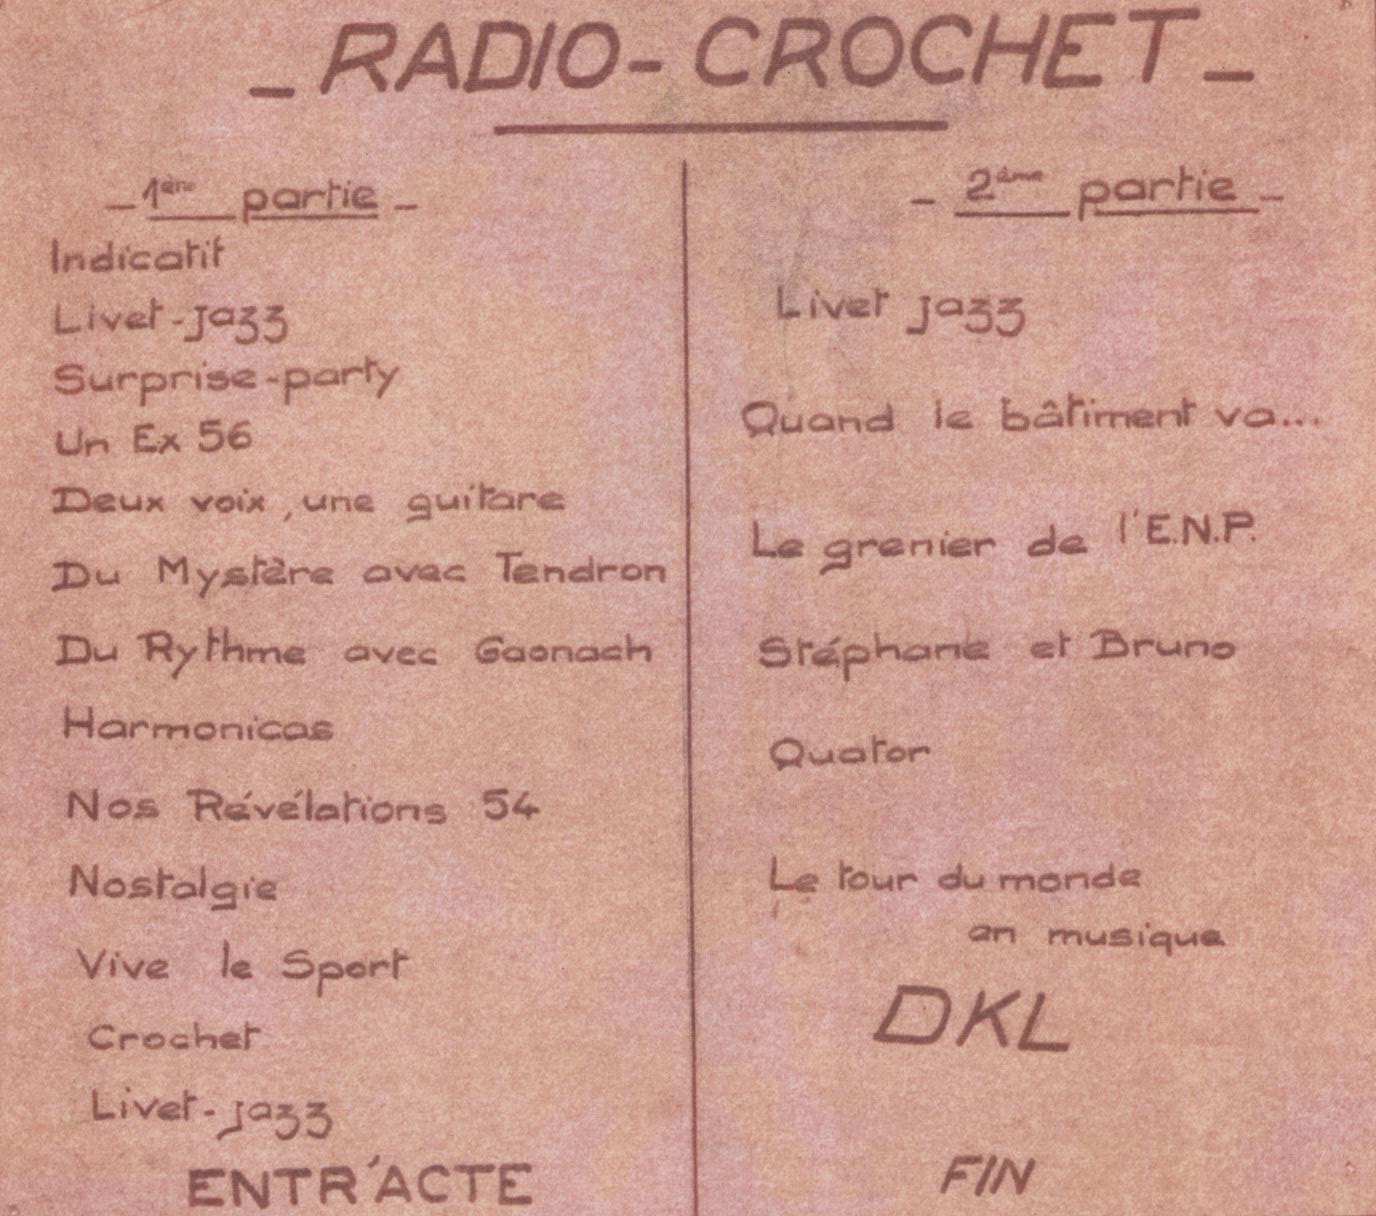 - RADIO - CROCHET -
- 1ère partie -
Indicatif
Livet-Jazz
Surprise-party
Un Ex 56
Deux voix, une guitare
Du Mystère avec Tendron
Du Rythme avec Gaonach
Harmonicas
Nos Révélations 54
Nostalgie
Vive le Sport
Crochet
Livet-Jazz
ENTR'ACTE
- 2ème partie -
Livet Jazz
Quand le bâtiment va...
Le grenier de l'E.N.P.
Stéphane et Bruno
Quator
Le tour du monde
en musique
DKL
FIN